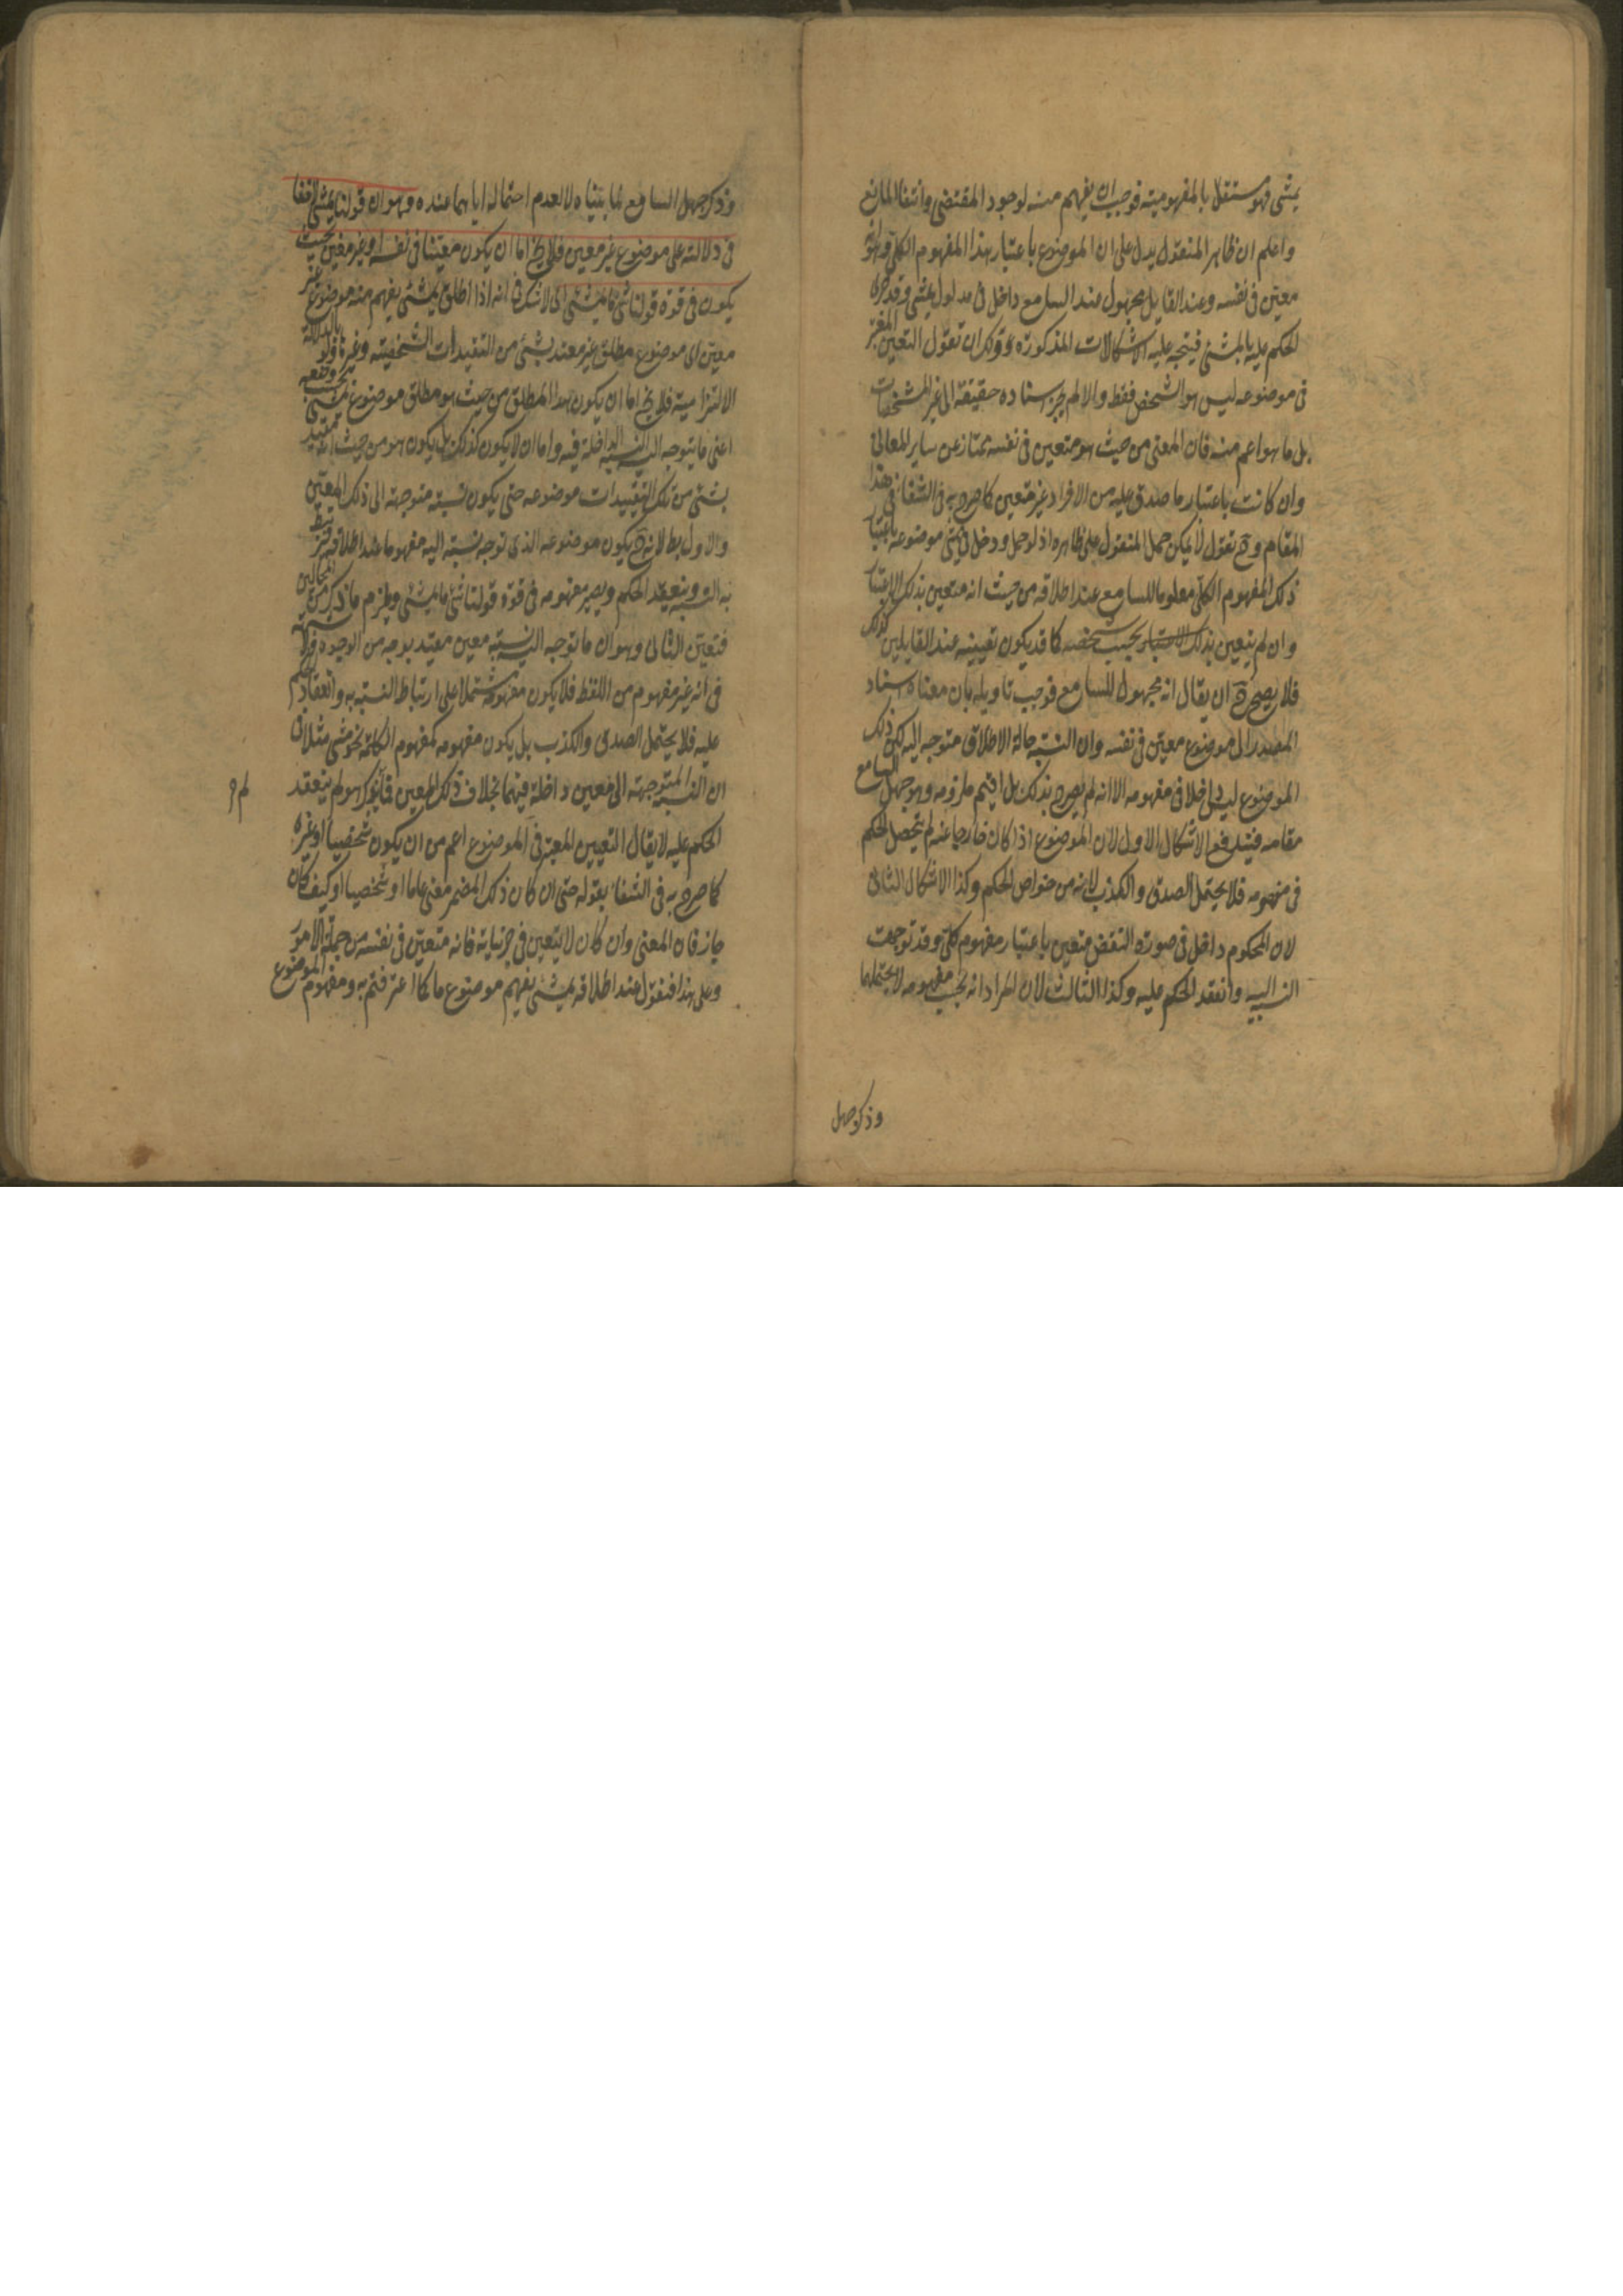 يمشي فهو مستقل بالمفهومية فوجب ان يفهم منه لوجود المقتضى وانتفا المانع
واعلم ان ظاهر المنقول يدل على ان الموضوع باعتبار هذا المفهوم الكلي
معين في نفسه وعند القايل مجهول عند السامع داخل في مدلول يمشي وقد
الحكم عليه بالمشي فيتجه عليه الاشكالات المذكورة ولك ان تقول التعين المعتبر
في موضوعه ليس هو الشخص فقط والا لم يجز اسناده حقيقة الى غير المشخصات
بل ما هو اعم منه فان المعنى من حيث هو متعين في نفسه ممتاز عن ساير المعاني
وان كانت باعتبار ما صدق عليه من الافراد غير متعين كما صرح به في الشفا في هذا
المقام وح نقول لا يمكن حمل المنقول على ظاهره اذ لو حمل ودخل في يمشي موضوعه باعتبار
ذلك المفهوم الكلي معلوما للسامع عند اطلاقه من حيث انه متعين بذلك الاعتبار
وان لم يتعين بذلك الاعتبار بحسب شخصه كما قد يكون تعيينه عند القايلين كذلك
فلا يصح ح ان يقال انه مجهول للسامع فوجب تاويله بان معناه اسناد
المصدر الى موضوع معين في نفسه وان النسبة حالة الاطلاق متوجه اليه لكن ذلك
الموضوع ليس داخلا في مفهومه الا انه لم يصرح بذلك بل اقيم ملزومه وهو جهل السامع
مقامه فيندفع الاشكال الاول لان الموضوع اذا كان خارجا عنه لم يتحصل الحكم
في مفهومه فلا يحتمل الصدق والكذب لانه من خواص الحكم وكذا الاشكال الثاني
لان المحكوم داخل في صورة النقض متعين باعتبار مفهوم كلي وقد توجهت
النسبة اليه وانعقد الحكم عليه وكذا الثالث لان المراد انه بحسب مفهومه لا يحتملهما
وذكر جهل
وذكر جهل السامع لما بيناه لا لعدم احتماله اياهما عنده وهو ان قولنا يمشي
في دلالته على موضوع غير معين فلا يخ اما ان يكون معينا في نفسه او غير معين بحيث
يكون في قوة قولنا شي ما يمشي لا شك في انه اذا اطلق يمشي يفهم منه موضوع غير
معين اي موضوع مطلق غير مقيد بشي من التقيدات الشخصية وغيرها بالدلالة
الالتزامية فلا يخ اما ان يكون هذا المطلق من حيث هو مطلق موضوع يمشي
اعني ما يتوجه اليه النسبة الداخلة فيه واما ان لا يكون كذلك بل يكون هو من حيث
بشي من تلك التقييدات موضوعه حتى يكون نسبته متوجهة الى ذلك المعين
والاول بط لانه ح يكون موضوعه الذي توجه نسبته اليه مفهوما عند اطلاقه فيرتبط
به النسبة وينعقد الحكم ويصير مفهومه في قوة قولنا شي ما يمشي ويلزم ما ذكر من المحالين
فتعين الثاني وهو ان ما توجه اليه النسبة معين مقيد بوجه من الوجوه
في انه غير مفهوم من اللفظ فلا يكون مفهومه مشتملا على ارتباط النسبة به وانعقاد الحكم
عليه فلا يحتمل الصدق والكذب بل يكون مفهومه كمفهوم الكلمة نحو مشى مثلا في
ان النسبة المتوجهة الى معين داخلة فيهما بخلاف ذلك المعين ولم ينعقد
الحكم عليه لا يقال التعيين المعتبر في الموضوع اعم من ان يكون شخصيا او غيره
كما صرح به في الشفا بقوله حتى ان كان ذلك المضمر معنى عاما او شخصيا او كيف كان
جاز فان المعنى وان كان لا يتعين في جزئياته فانه متعين في نفسه من جملة الامور
وعلى هذا فنقول عند اطلاقه يمشي يفهم موضوع ما كما اعترفتم به ومفهوم الموضوع